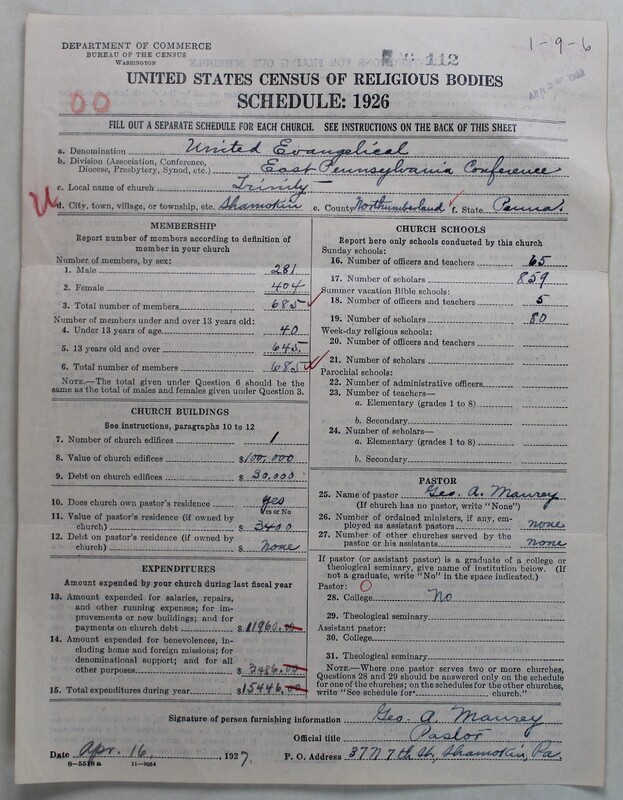 DEPARTMENT OF COMMERCE
BUREAU OF THE CENSUS
WASHINGTON
112
1-9-6
UNITED STATES CENSUS OF RELIGIOUS BODIES
SCHEDULE: 1926
00
FILL OUT A SEPARATE SCHEDULE FOR EACH CHURCH. SEE INSTRUCTIONS ON THE BACK OF THIS SHEET
a. Denomination United Evangelical
b. Division (Association, Conference, Diocese, Presbytery, Synod, etc.) East Pennsylvania Conference
c. Local name of church Trinity
d. City, town, village, or township, etc. Shamokin e. County Northumberland f. State Penna
MEMBERSHIP
Report number of members according to definition of
member in your church
Number of members, by sex:
1. Male 281
2. Female 404
3. Total number of members 685
Number of members under and over 13 years old:
4. Under 13 years of age 40
5. 13 years old and over 645
6. Total number of members 685
NOTE.—The total given under Question 6 should be the
same as the total of males and females given under Question 3.
CHURCH BUILDINGS
See instructions, paragraphs 10 to 12
7. Number of church edifices 1
8. Value of church edifices $100,000
9. Debt on church edifices $ 30,000
10. Does church own pastor's residence yes
Yes or No
11. Value of pastor's residence (if owned by
church) $ 3400
12. Debt on pastor's residence (if owned by
church) $ None
EXPENDITURES
Amount expended by your church during last fiscal year
13. Amount expended for salaries, repairs,
and other running expenses; for im-
provements or new buildings; and for
payments on church debt $ 11960.00
14. Amount expended for benevolences, in-
cluding home and foreign missions; for
denominational support; and for all
other purposes $ 3486.00
15. Total expenditures during year $ 15446.00
CHURCH SCHOOLS
Report here only schools conducted by this church
Sunday schools:
16. Number of officers and teachers 65
17. Number of scholars 859
Summer vacation Bible schools:
18. Number of officers and teachers 5
19. Number of scholars 80
Week-day religious schools:
20. Number of officers and teachers
21. Number of scholars
Parochial schools:
22. Number of administrative officers
23. Number of teachers—
a. Elementary (grades 1 to 8)
b. Secondary
24. Number of scholars—
a. Elementary (grades 1 to 8)
b. Secondary
PASTOR
25. Name of pastor Geo. A. Maurey
(If church has no pastor, write "None")
26. Number of ordained ministers, if any, em-
ployed as assistant pastors none
27. Number of other churches served by the
pastor or his assistants none
If pastor (or assistant pastor) is a graduate of a college or
theological seminary, give name of institution below. (If
not a graduate, write "No" in the space indicated.)
Pastor: O
28. College No
29. Theological seminary
Assistant pastor:
30. College
31. Theological seminary
NOTE.—Where one pastor serves two or more churches,
Questions 28 and 29 should be answered only on the schedule
for one of the churches; on the schedules for the other churches,
write "See schedule for church."
Signature of person furnishing information Geo. A. Maurey
Official title Pastor
Date Apr. 16, 1927. P. O. Address 37 N 7th St., Shamokin, Pa.
8-5518 a 11-9684